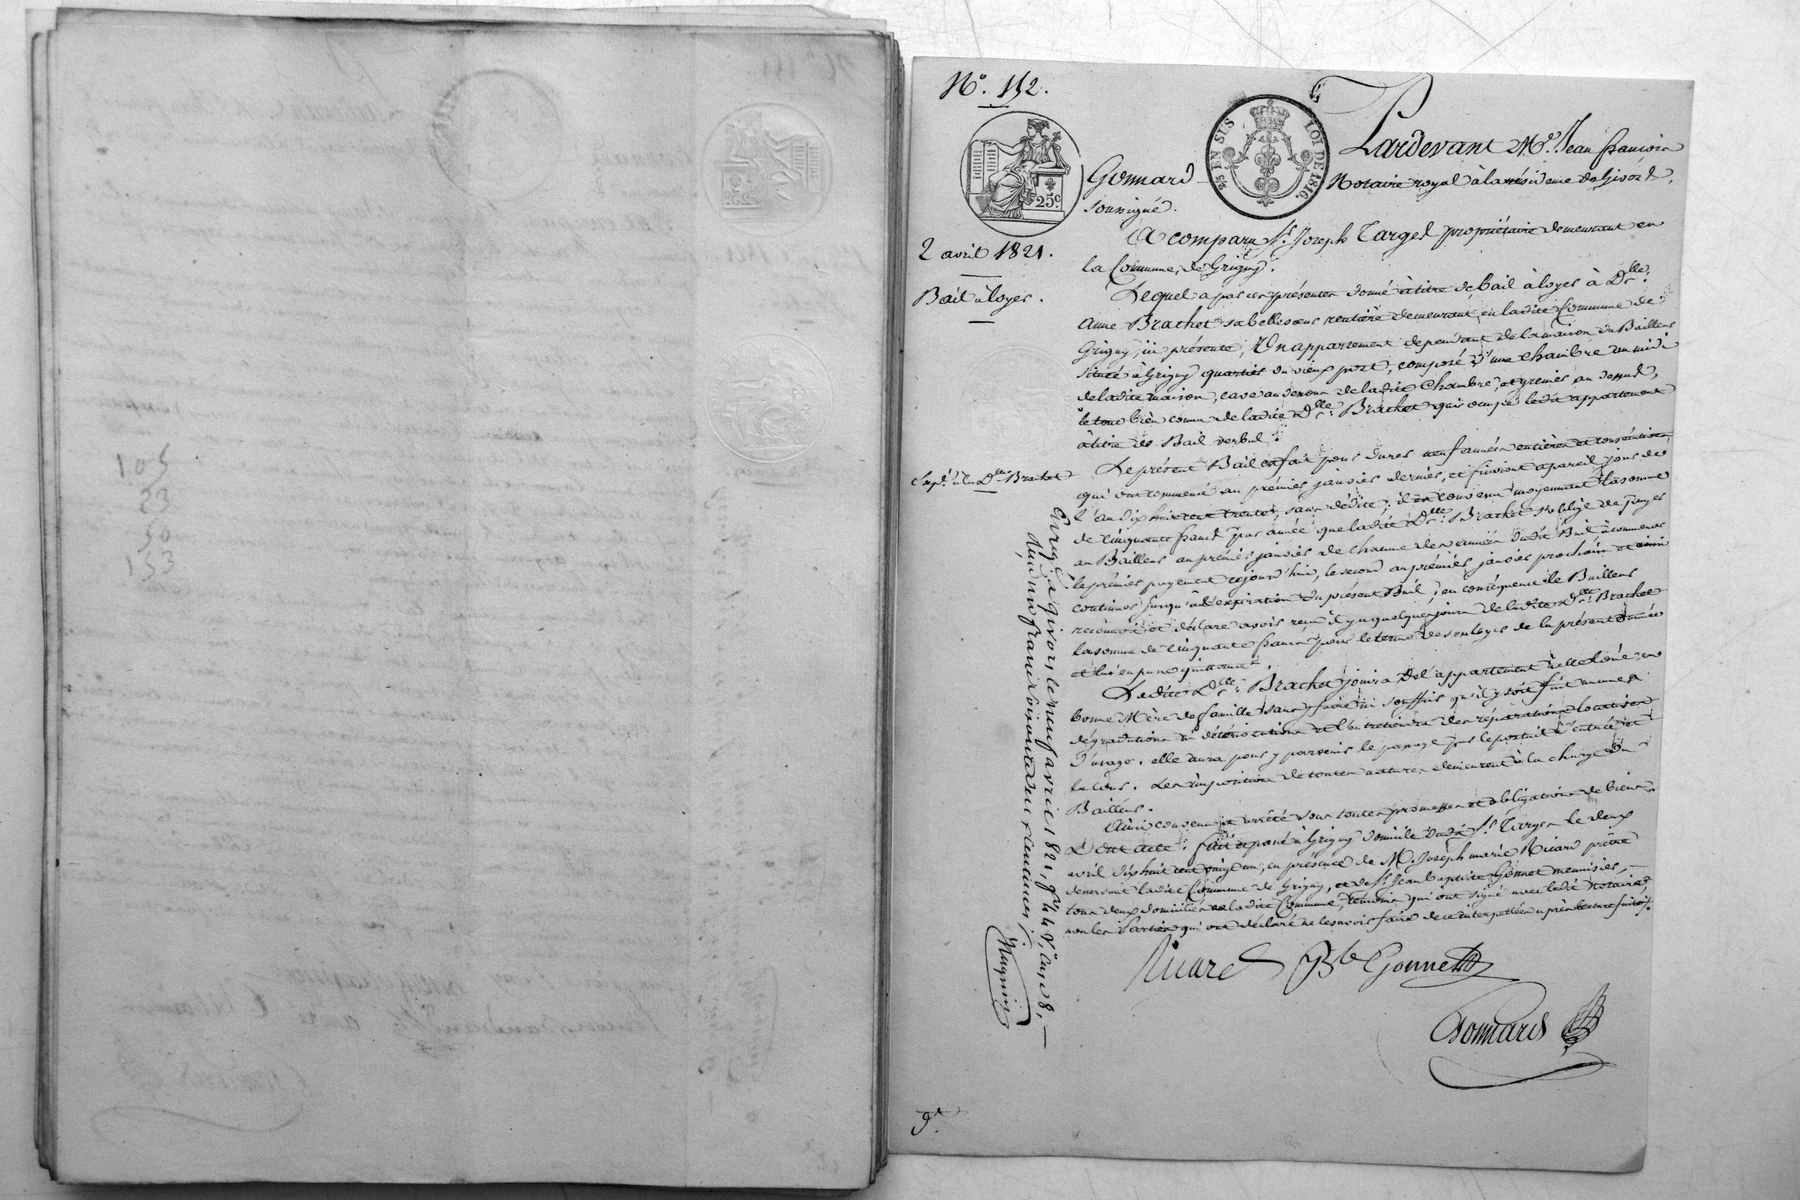 N.º 152.
25 EN SUS
LOI DE 1816.
25.c
Pardevant M.e Jean françois
Gonnard Notaire royal à la résidence de Givors,
soussigné.
2 avril 1821.
Bail à loyer.
A comparu S.r Joseph Targe propriétaire demeurant en
la Commune de Grigny.
Lequel a par ces présentes donné à titre de bail à loyer à D.lle
Anne Brachet sa belle sœur rentière demeurant en ladite Commune de
Grigny, ici présente, Un appartement dépendant de la maison du Bailleur
située à Grigny quartier du vieux port, composé d'une chambre au midi
de ladite maison, cave au dessous de ladite Chambre, et grenier au dessus,
le tout bien connu de ladite D.lle Brachet qui occupe ledit appartement
à titre de Bail verbal.
Exp.é à la D.lle Brachet
Le présent Bail est fait pour durer neuf années entières et consécutives
qui ont commencé au premier janvier dernier, et finiront à pareil jour de
l'an dix huit cent trente, sans dédite; il est convenu moyennant la somme
de cinquante francs par année que ladite D.lle Brachet s'oblige de payer
au Bailleur au premier janvier de chacune des années dudit Bail à commencer
le premier payement cejourd'hui, le second au premier janvier prochain et ainsi
continuer jusqu'à l'expiration du présent Bail, en conséquence le Bailleur
reconnoit et déclare avoir reçu il y a quelques jours de ladite D.lle Brachet
la somme de cinquante francs pour le terme des loyers de la présente année
et lui en passe quittance.
Ladite D.lle Brachet jouira de l'appartement à elle loué en
bonne Mère de famille sans y faire ni souffrir qu'il y soit fait aucunes
dégradations ni détériorations et l'entretiendra des réparations locatives
d'usage. elle aura pour y parvenir le passage par le portail d'entrée et
la cour. Les imposition de toutes natures demeurent à la charge du
Bailleur.
Ainsi convenu et arrêté sous toutes promesses et obligations de biens.
Dont acte: fait et passé à Grigny domicile dudit S.r Targe le deux
avril dix huit cent vingt un, en présence de M. Joseph marie Ricard prêtre
desservant ladite Commune de Grigny, et de S.r Jean Baptiste Gonnet menuisier,
tous deux domiciliés en ladite Commune, témoins qui ont signé avec ledit Notaire,
non les Parties qui ont déclaré ne le savoir faire de ce interpellées après lecture faite.
Ricard B.te Gonnet
Gonnard
Enreg.é à givors le neuf avril 1821, f.o 44 V.o, C.es 8,
Reçu un franc dix centimes
Magnin
105
23
50
133